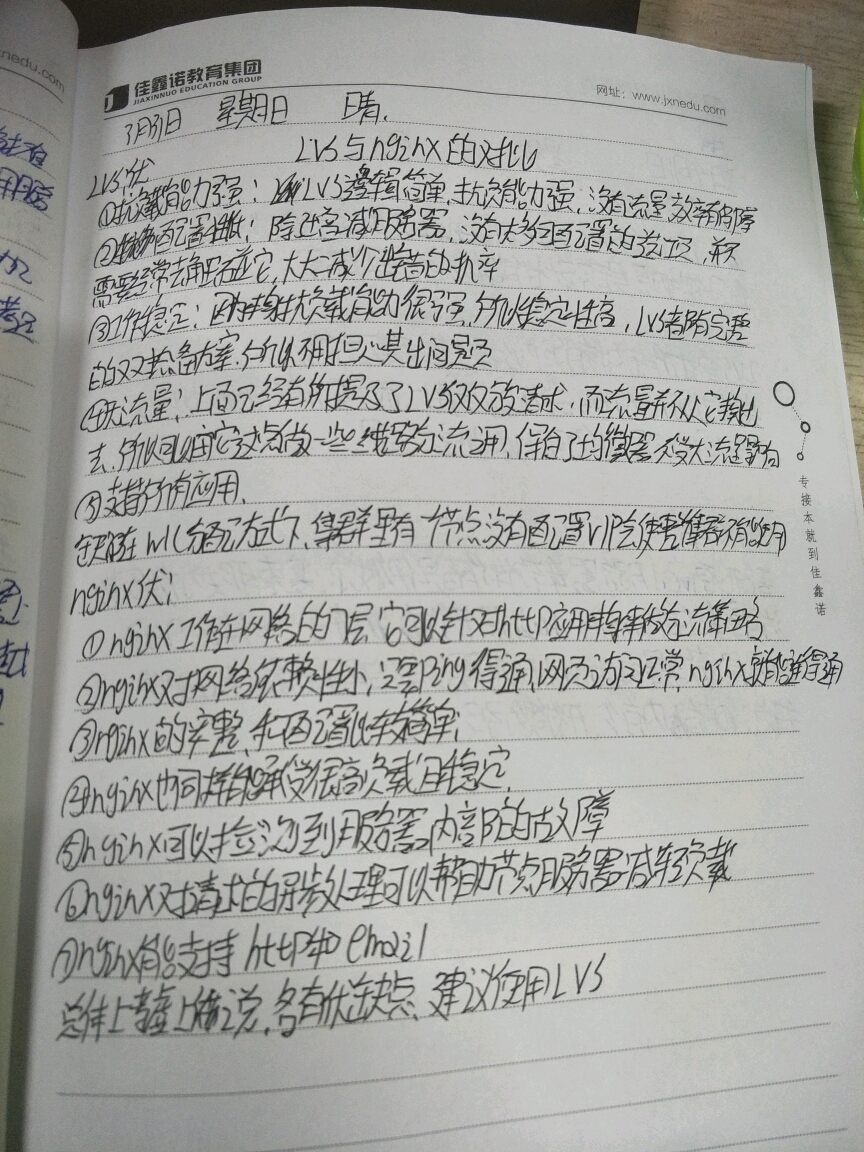 xnedu.com
佳鑫诺教育集团
JIAXINNUO EDUCATION GROUP
网址：www.jxnedu.com
3月31日 星期日 晴.
LVS与nginx的对比
LVS优
①抗载能力强：LVS逻辑简单,抗负能力强,没有流量,效率有保障
②配置性低：除增减服务器,没有太多可配置的选项,并不
需要经常去触碰它,大大减少出错的机率
③工作稳定：因为本身抗负载能力很强,所以稳定性高,LVS都有完整
的双热备方案,所以不用担心其出问题
④无流量：上面已经有所提及了LVS仅仅分发请求,而流量并不从它本身出
去,所以可以用它这点做一些线路分流之用,保留了均衡器不受大流量影响
⑤支持所有应用.
缺陷在wlc分配方式下,集群里有一节点没有配置VIP会使整个集群不能使用
nginx优：
①nginx工作在网络的7层,它可以针对http应用本身来做分流策略
②nginx对网络依赖性小,只要Ping得通,网页访问正常,nginx就能连得通
③nginx的安装,和配置比较简单;
④nginx也同样能承受很高负载且稳定,
⑤nginx可以检测到服务器内部的故障
⑥nginx对请求的异步处理可以帮助节点服务器减轻负载
⑦nginx能支持http和email
总体上来说,各有优缺点,建议使用LVS
专接本就到佳鑫诺